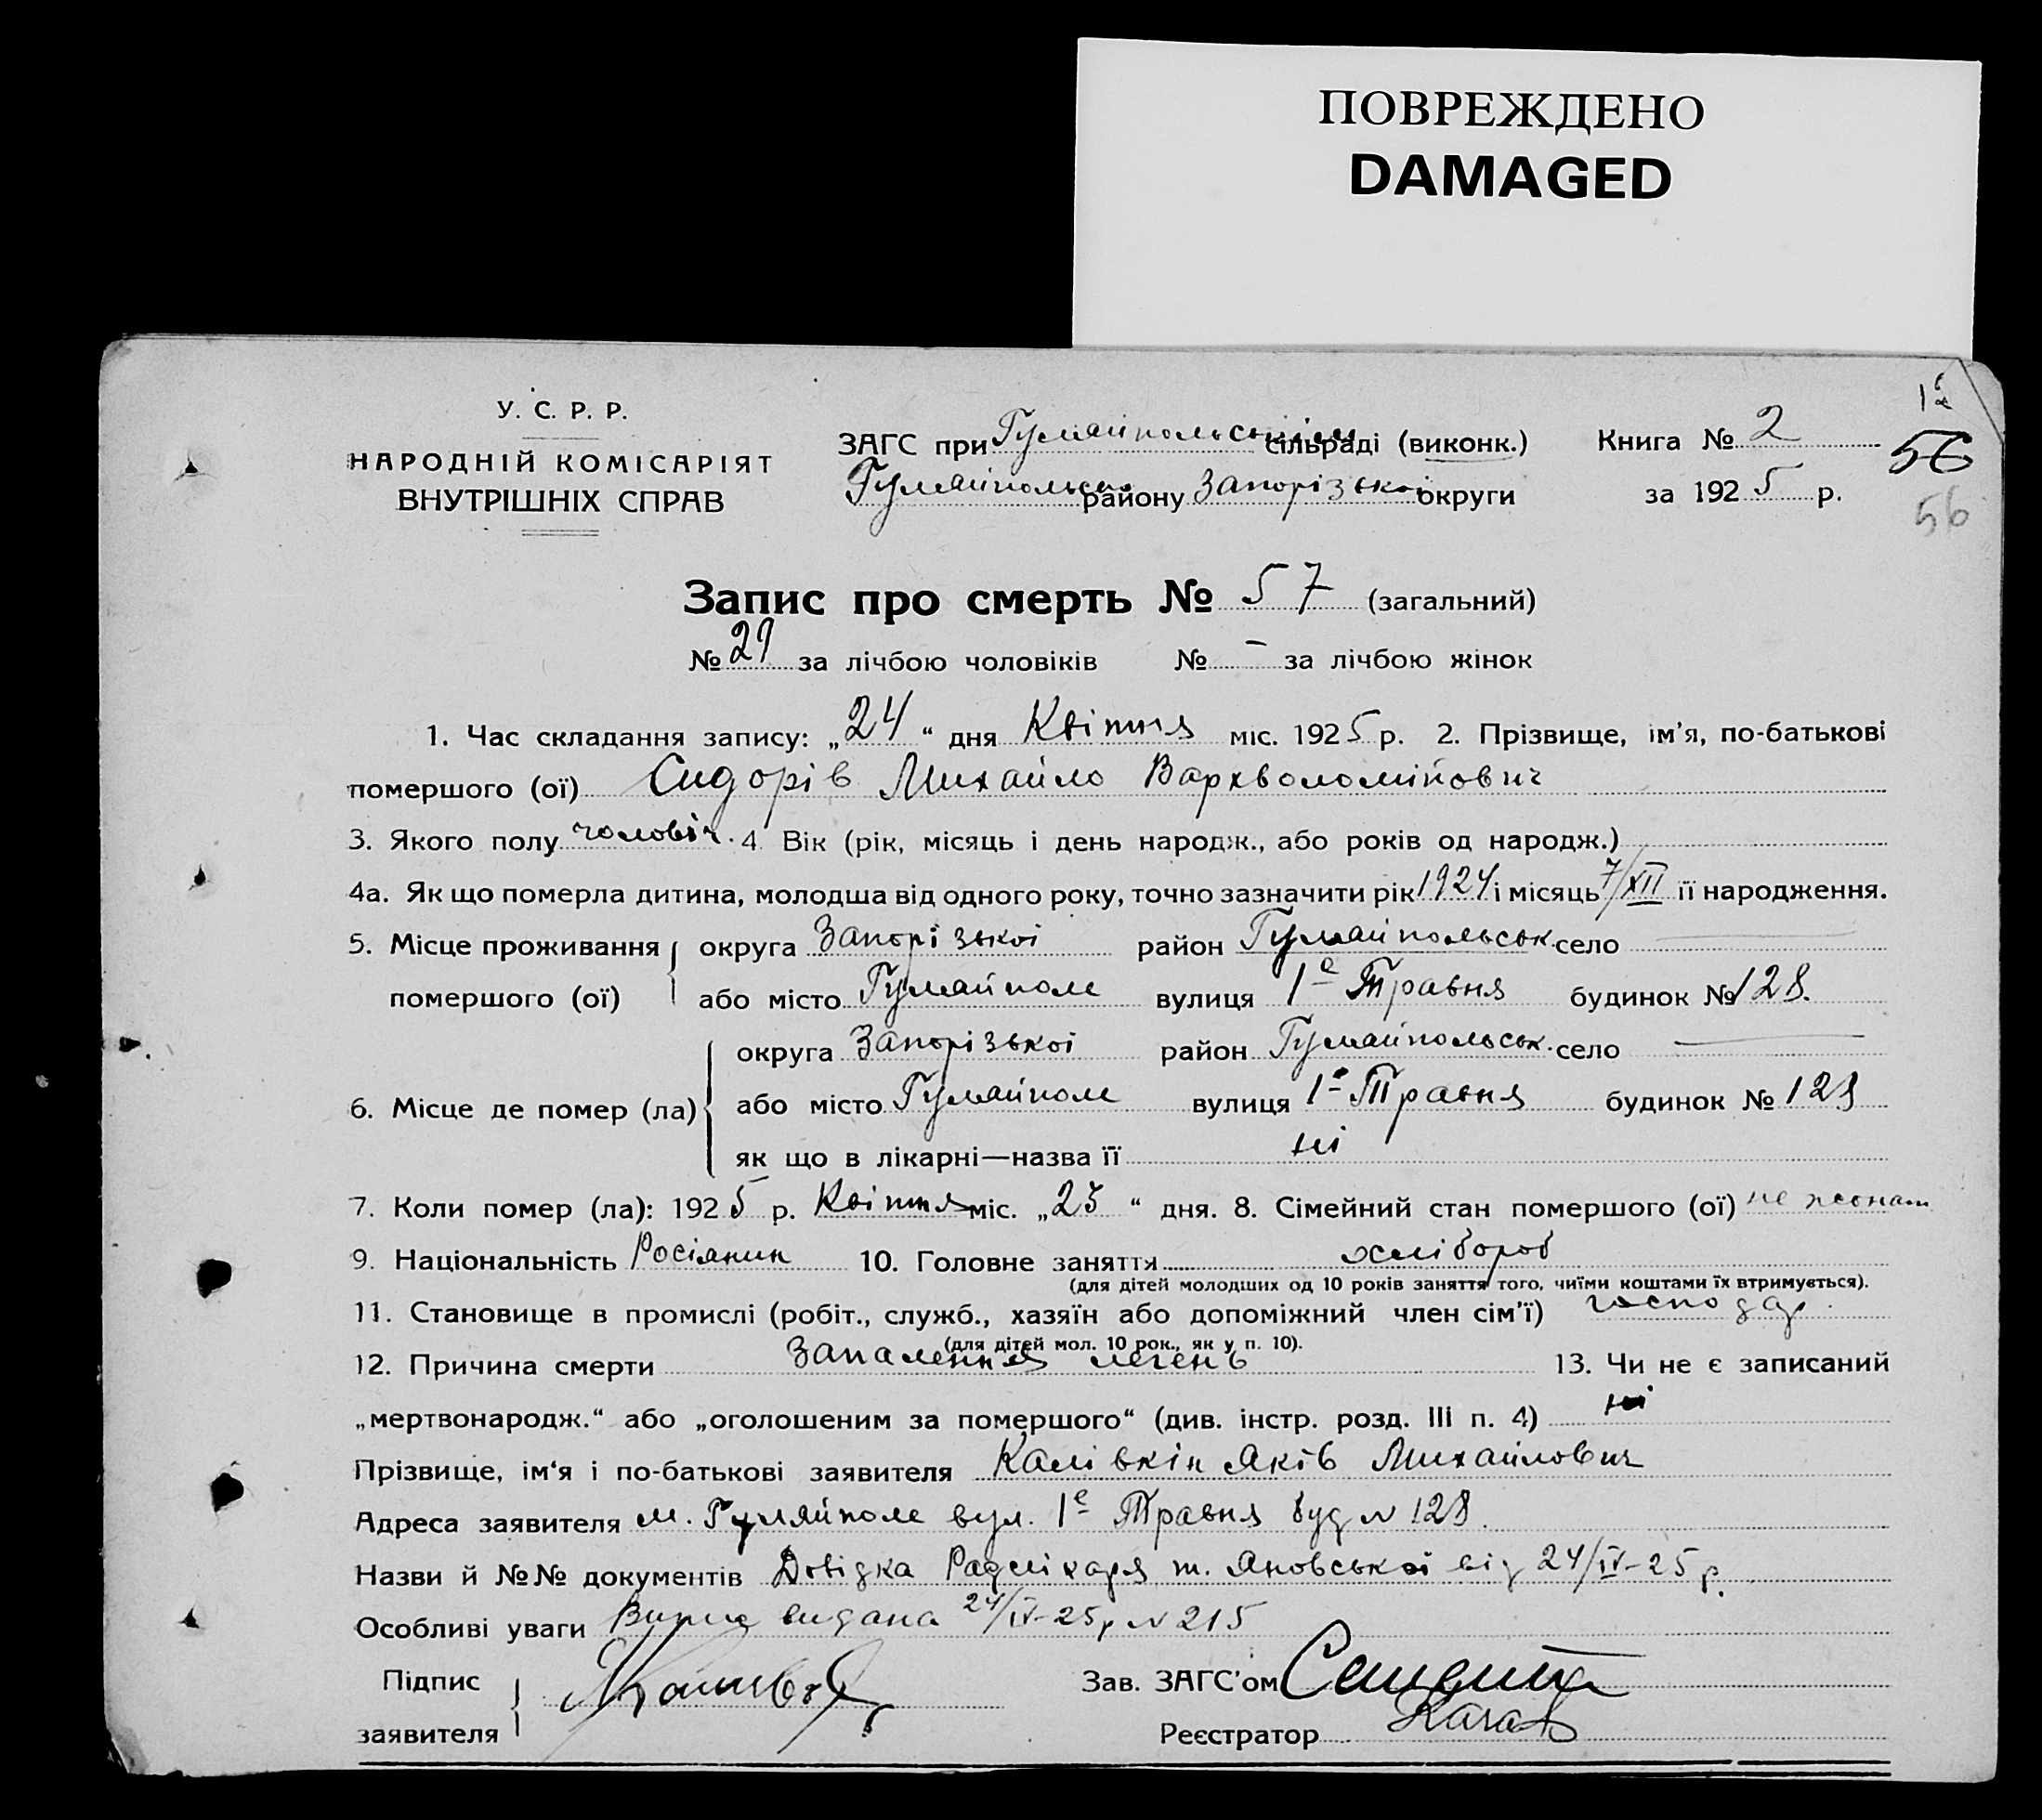 ПОВРЕЖДЕНО
DAMAGED
У. С. Р. Р.
НАРОДНІЙ КОМІСАРІЯТ
ВНУТРІШНІХ СПРАВ
ЗАГС при Гуляйпольським сільраді (виконк.)
Гуляйпольськ району Запорізької округи
Книга № 2
за 1925 р.
56
56
Запис про смерть № 57 (загальний)
№ 29 за лічбою чоловіків № - за лічбою жінок
1. Час складання запису: „24“ дня Квітня міс. 1925 р. 2. Прізвище, ім'я, по-батькові
помершого (ої) Сидорів Михайло Вархволомійович
3. Якого полу чоловіч. 4. Вік (рік, місяць і день народж., або років од народж.)
4а. Як що померла дитина, молодша від одного року, точно зазначити рік 1924 і місяць 7/XII її народження.
5. Місце проживання округа Запорізької район Гуляйпольськ. село
помершого (ої) або місто Гуляйполе вулиця 1е Травня будинок № 128.
округа Запорізької район Гуляйпольськ. село
6. Місце де помер (ла) або місто Гуляйполе вулиця 1е Травня будинок № 128
як що в лікарні—назва її ні
7. Коли помер (ла): 1925 р. Квітня міс. „23“ дня. 8. Сімейний стан помершого (ої) не жонат
9. Національність Росіянин 10. Головне заняття хлібороб
(для дітей молодших од 10 років заняття того, чиїми коштами їх втримується).
11. Становище в промислі (робіт., служб., хазяїн або допоміжний член сім'ї) господар.
(для дітей мол. 10 рок., як у п. 10).
12. Причина смерти Запалення легень 13. Чи не є записаний
„мертвонародж.“ або „оголошеним за помершого“ (див. інстр. розд. III п. 4) ні
Прізвище, ім'я і по-батькові заявителя Калівкін Яків Михайлович
Адреса заявителя м. Гуляйполе вул. 1е Травня буд № 128.
Назви й №№ документів Довідка Радлікаря т. Яновської від 24/IV-25 р.
Особливі уваги видана 24/IV-25р № 215
Підпис
заявителя
Зав. ЗАГС'ом
Реєстратор